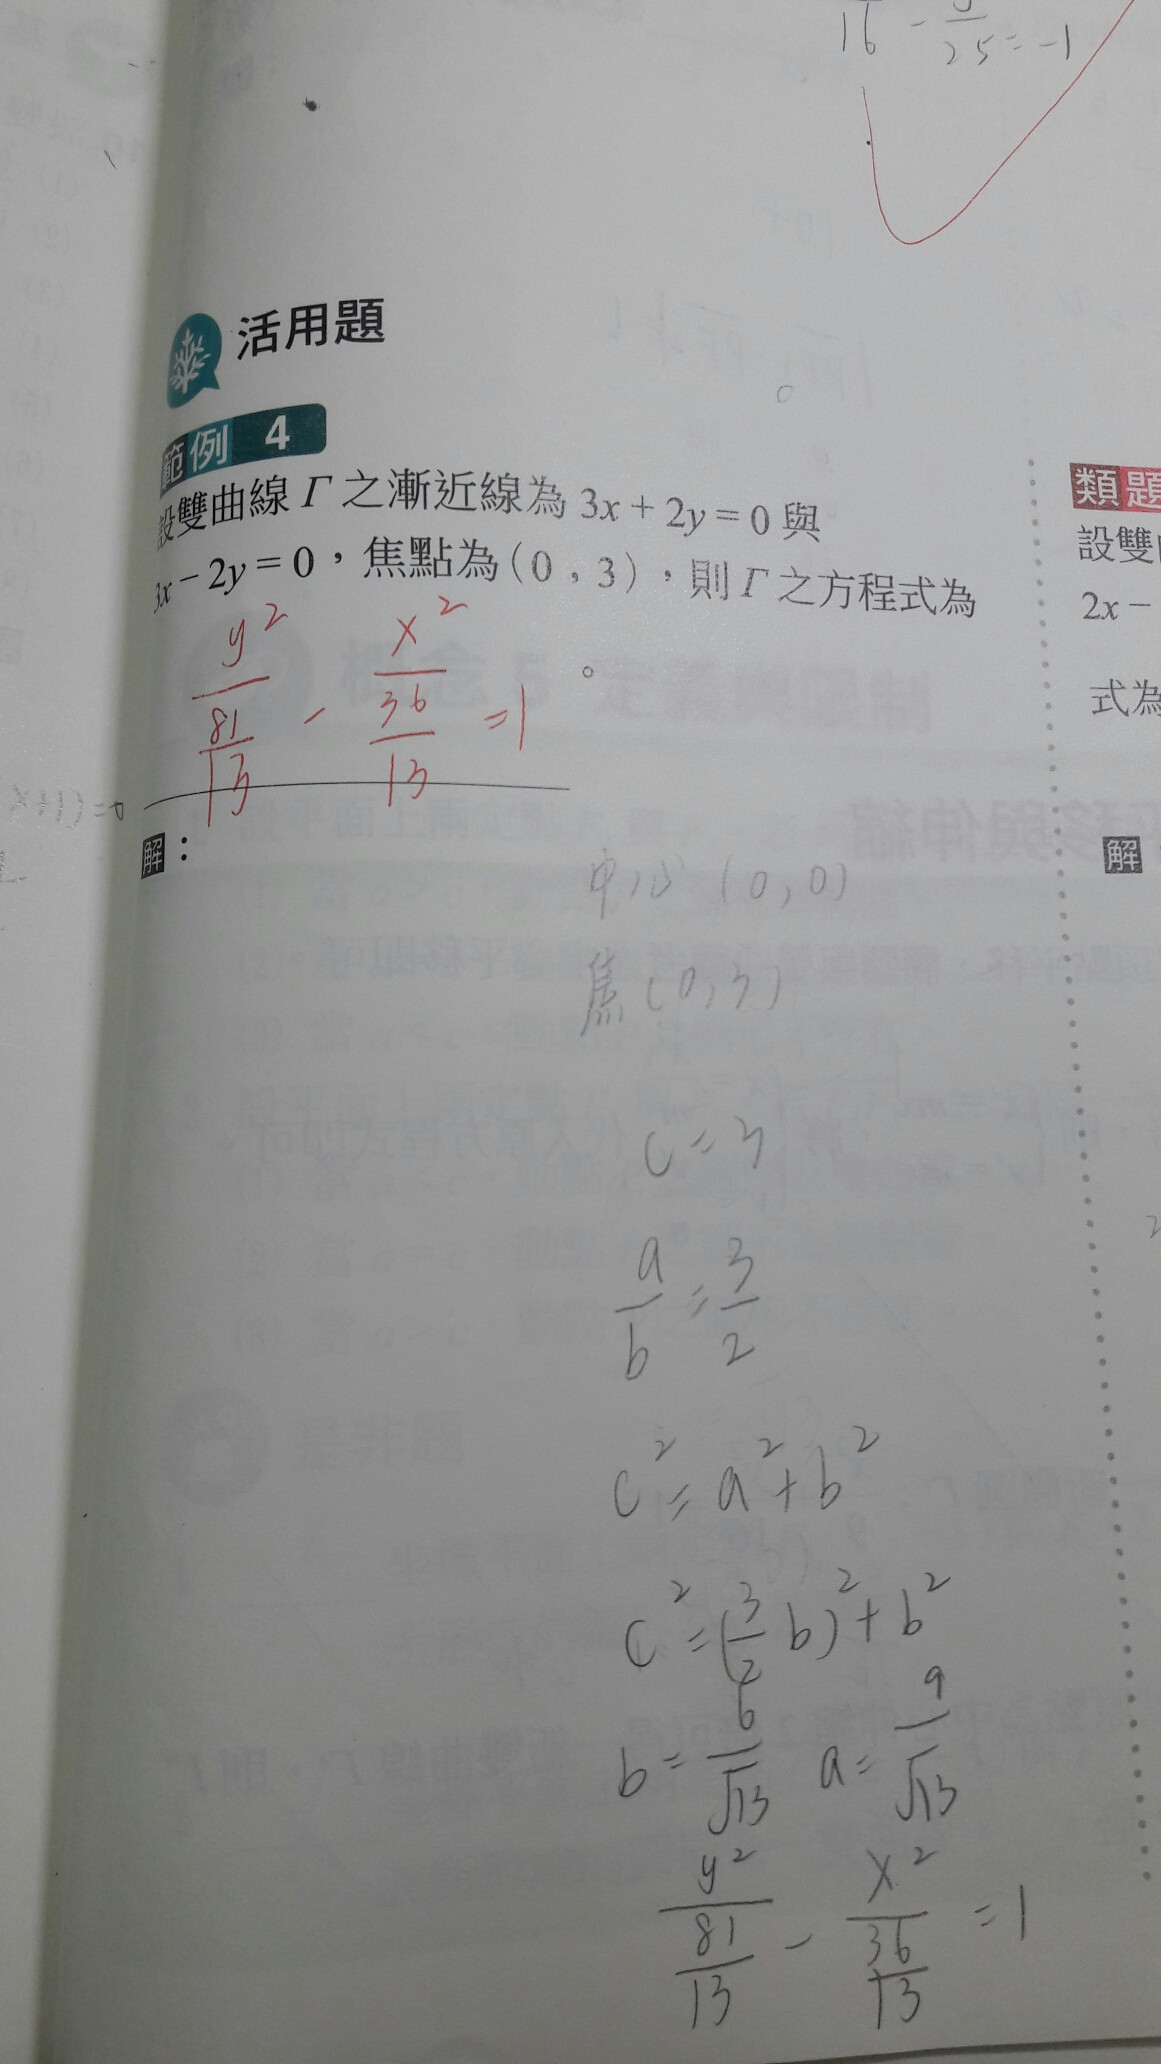 16 - 25 = -1
活用題
範例 4
設雙曲線 Γ 之漸近線為 3x + 2y = 0 與
3x − 2y = 0，焦點為 (0 , 3)，則 Γ 之方程式為
y²/(81/13) - x²/(36/13) = 1 。
解：
中心 (0,0)
焦 (0,3)
c = 3
a/b = 3/2
c² = a² + b²
c² = (3/2 b)² + b²
b = 6/√13 a = 9/√13
y²/(81/13) - x²/(36/13) = 1
類題
設雙
2x −
式為
解